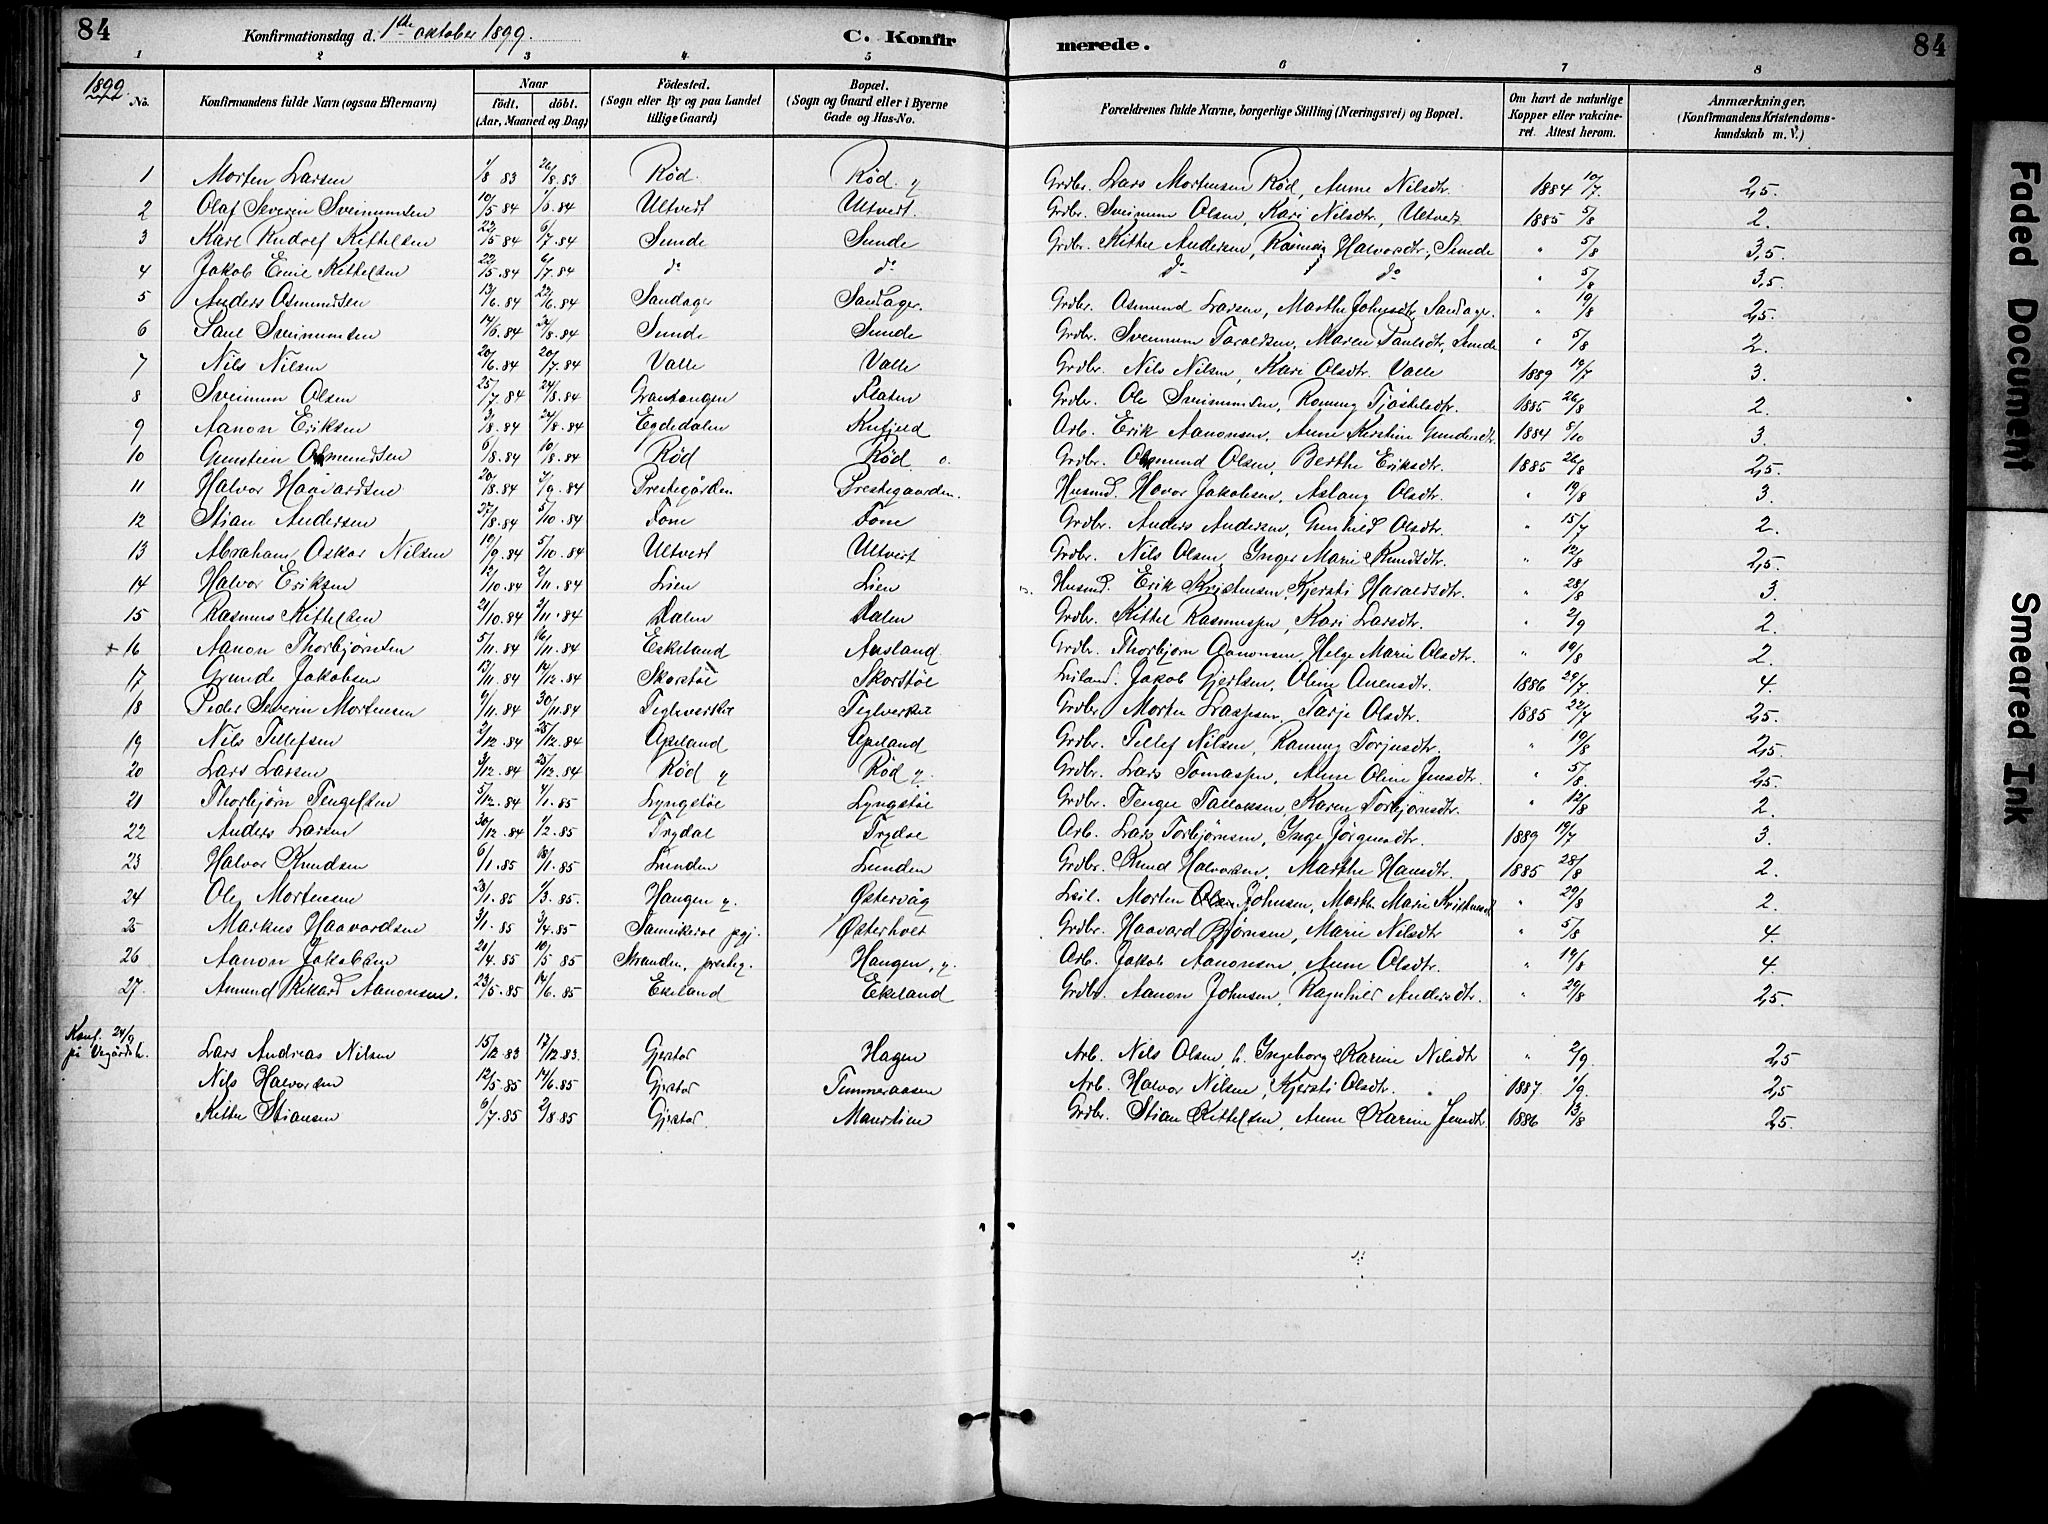 84 Konfirmationsdag d. 1ste oktober 1899. C. Konfir merede. 84
1 2 3 4 5 6 7 8
1899. No. Konfirmandens fulde Navn (ogsaa Efternavn) Naar født. døbt. (Aar, Maaned og Dag) Födested. (Sogn eller By og paa Landet tillige Gaard) Bopæl. (Sogn og Gaard eller i Byerne Gade og Hus-No. Forældrenes fulde Navne, borgerlige Stilling (Næringsvei) og Bopæl. Om havt de naturlige Kopper eller vakcineret. Attest herom. Anmærkninger. (Konfirmandens Kristendomskundskab m. V.)
1 Morten Larsen 1/8 83 26/8.83 Rød Rød y Grdbr. Lars Mortensen Rød, Anne Nilsdtr. 1884 10/7. 2,5.
2 Olaf Severin Sveinumsen 10/5.84 1/6.84 Ultvert Ultvert. Grdbr. Sveinum Olsen, Kari Nilsdtr, Ultvet 1885 5/8 2.
3 Karl Rudolf Kittelsen 22/5.84 6/7.84 Sunde Sunde Grdbr. Kittel Andersen, Halvorsdtr., Sunde " 5/8 3,5.
4 Jakob Emil Kittelsen 22/5.84 6/7.84 do do do do " 5/8 3,5.
5 Anders Osmundsen 13/6.84 22/6.84 Sandager Sandager. Grdbr. Osmund Larsen, Marthe Johnsdtr Sandager. " 19/8 2,5.
6 Paul Sveinumsen 14/6.84 24/8.84 Sunde Sunde Grdbr. Sveinum Taraldsen, Maren Paulsdtr, Sunde " 5/8 2.
7 Nils Nilsen 20/6.84 20/7.84 Valle Valle Grdbr. Nils Nilsen, Kari Olsdtr. Valle 1889 19/7 3.
8 Sveinum Olsen 25/7.84 24/8.84 Grantangen Flaten Grdbr. Ole Sveinumsen, Ronnug Tjøstelsdtr. 1885 26/8 2.
9 Aanon Eriksen 2/8.84 24/8.84 Egdedalen Rufjeld Arb. Erik Aanonsen, Anne Kirstine Gundersdtr 1884 5/10 3.
10 Gunstein Osmundsen 6/8.84 10/8.84 Rød Rød o. Grdbr. Osmund Olsen, Berthe Eriksdtr. 1885 26/8 2,5.
11 Halvor Haavardsen 20/8.84 7/9.84 Prestegården Prestegaarden. Husmd. Hovor Jakobsen, Aslaug Olsdtr. " 19/8 3.
12 Stian Andersen 27/8.84 5/10.84 Tome Tome Grdbr. Anders Andersen, Gunhild Olsdtr. " 15/7 2.
13 Abraham Oskar Nilsen 10/9.84 5/10.84 Ultvert Ultvert Grdbr. Nils Olsen, Inger Marie Knudsdtr. " 12/8 2,5.
14 Halvor Eriksen 2/10.84 2/11.84 Lien Lien Husmd. Erik Kristensen, Kjersti Haraldsdtr. " 28/8 3.
15 Rasmus Kittelsen 21/10.84 2/11.84 Dalen Dalen Grdbr. Kittel Rasmussen, Kari Larsdtr. " 2/9 2.
+16 Aanon Thorbjørnsen 5/11.84 16/11.84 Eskeland Ausland. Grdbr. Thorbjørn Aanonsen, Helge Marie Olsdtr. " 19/8 2.
17 Grunde Jakobsen 13/11.84 14/12.84 Skorstøl Skorstøl Leiland. Jakob Gjertsen, Oline Avensdtr. 1886 29/7. 4.
18 Peder Severin Mortensen 9/11.84 30/11.84 Teglverket Teglverket Grdbr Morten Larssen, Tarje Olsdtr. 1885 22/7 2,5.
19 Nils Tellefsen 2/12.84 25/12.84 Apeland Apeland Grdbr. Tellef Nilsen, Ronnug Torjusdtr. " 19/8 2,5.
20 Lars Larsen 3/12.84 25/12.84 Rød y Rød y. Grdbr. Lars Tomassen, Anne Oline Jensdtr. " 5/8. 2,5.
21 Thorbjørn Tengelsen 5/12.84 4/1.85 Lyngstøl Lyngstøl Grdbr. Tengel Tallaksen, Karen Torbjørnsdtr. " 12/8 2.
22 Anders Larsen 30/12.84 1/2.85 Trydal Trydal Arb. Lars Torbjørnsen, Inge Jørgensdtr. 1889 19/7 3.
23 Halvor Knudsen 6/1.85 18/1.85 Lunden Lunden Grdbr. Knud Halvorsen, Marthe Hansdtr. 1885 28/8 2.
24 Ole Mortensen 28/1.85 1/3.85. Haugen y. Østervåg Leil. Morten Johnsen, Marthe Marie Kristensd " 29/8 2.
25 Markus Haavardsen 3/1.85 3/4.85 pgj. Østerholt Grdbr. Haavard Bjørnsen, Marie Nilsdtr " 5/8 4.
26 Aanon Jakobsen 21/4.85 10/5 85 Stranden, prestg. Haugen, y. Arb. Jakob Aanonsen, Anne Olsdtr. " 19/8 4.
27. Amund Rikard Aanonsen. 23/5.85 14/6.85 Ekeland Ekeland Grdbr. Aanon Johnsen, Ragnhild Andersdtr. " 29/8 2,5.
Konf. 24/9 på Vegårdsh. Lars Andreas Nilsen 15/12.83 17/12.83. Gjerstad Hagen Arb. Nils Olsen, h. Ingeborg Karine Nilsdtr " 2/9. 2,5
Nils Halvorsen 12/5.85 14/6.85 Gjerstad Timmeraasen Arb. Halvor Nilsen, Kjersti Olsdtr. 1887. 1/9. 2,5
Kittel Stiansen 6/7.85 2/8.85 Gjerstad. Maurlien Grdbr. Stian Kittelsen, Anne Karine Jensdtr 1886 13/8 2,5.
Faded Document
Smeared Ink